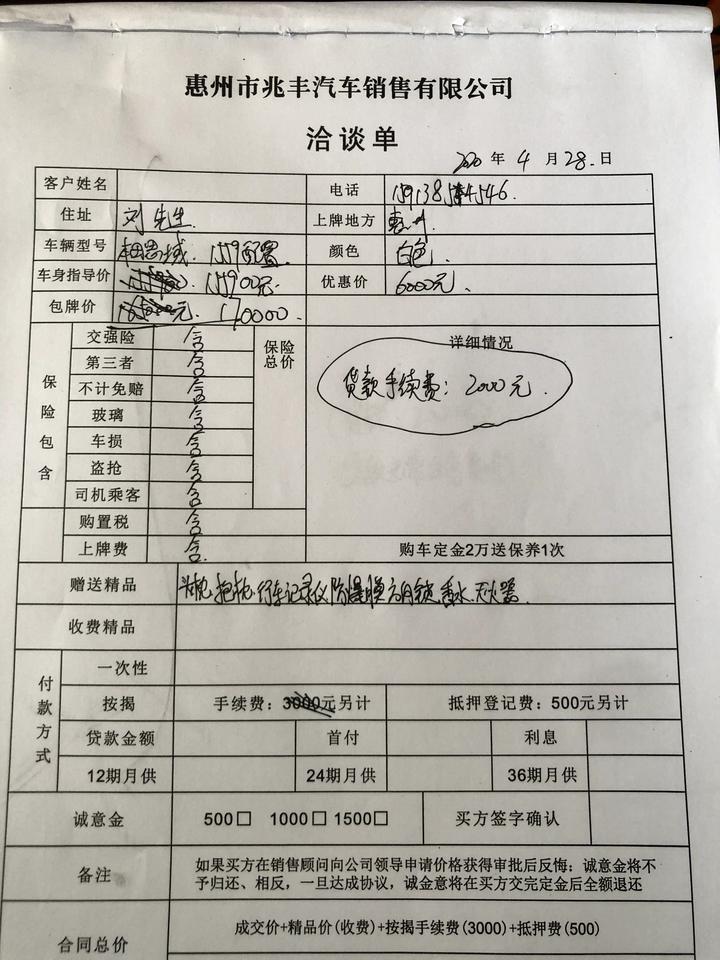 惠州市兆丰汽车销售有限公司
洽谈单
2020 年 4 月 28 日
客户姓名 电话
住址 刘先生 上牌地方 惠州
车辆型号 1559配置 颜色 白色
车身指导价 15900元 优惠价 6000元
包牌价 170000
保险包含 交强险 含 保险总价 详细情况
第三者 含
不计免赔 含 贷款手续费：2000元
玻璃 含
车损 含
盗抢 含
司机乘客 含
购置税 含
上牌费 含 购车定金2万送保养1次
赠送精品 头枕 抱枕 行车记录仪 防爆膜 方向锁 香水 灭火器
收费精品
付款方式 一次性
按揭 手续费：3000元另计 抵押登记费：500元另计
贷款金额 首付 利息
12期月供 24期月供 36期月供
诚意金 500□ 1000□ 1500□ 买方签字确认
备注 如果买方在销售顾问向公司领导申请价格获得审批后反悔：诚意金将不
予归还、相反，一旦达成协议，诚金意将在买方交完定金后全额退还
合同总价 成交价+精品价(收费)+按揭手续费(3000)+抵押费(500)